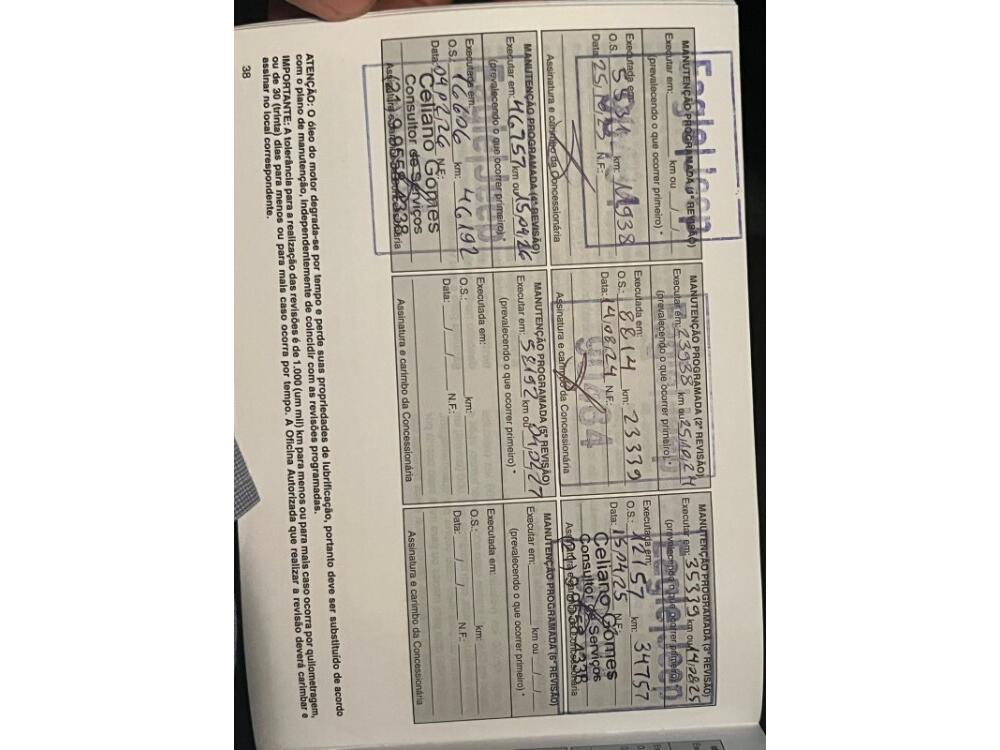 MANUTENÇÃO PROGRAMADA (1ª REVISÃO)
Executar em: ______ km ou __/__/__
(prevalecendo o que ocorrer primeiro) *
Executada em:
O.S.: 5531 km: 11938
Data: 25/10/23 N.F.:
Assinatura e carimbo da Concessionária
EagleJeep
MANUTENÇÃO PROGRAMADA (2ª REVISÃO)
Executar em: 23938 km ou 25/10/24
(prevalecendo o que ocorrer primeiro) *
Executada em:
O.S.: 8814 km: 23339
Data: 14/08/24 N.F.:
Assinatura e carimbo da Concessionária
MANUTENÇÃO PROGRAMADA (3ª REVISÃO)
Executar em: 35339 km ou 14/08/25
(prevalecendo o que ocorrer primeiro) *
Executada em:
O.S.: 12157 km: 34757
Data: 15/04/25 N.F.:
Celiano Gomes
Consultor de Serviços
(21) 9.9658.4338
EagleJeep
MANUTENÇÃO PROGRAMADA (4ª REVISÃO)
Executar em: 46757 km ou 15/04/26
(prevalecendo o que ocorrer primeiro) *
Executada em:
O.S.: 16606 km: 46192
Data: 04/02/26 N.F.:
Celiano Gomes
Consultor de Serviços
(21) 9.9658.4338
MANUTENÇÃO PROGRAMADA (5ª REVISÃO)
Executar em: 58192 km ou 04/02/27
(prevalecendo o que ocorrer primeiro) *
Executada em:
O.S.: ______ km: ______
Data: __/__/__ N.F.: ______
Assinatura e carimbo da Concessionária
MANUTENÇÃO PROGRAMADA (6ª REVISÃO)
Executar em: ______ km ou __/__/__
(prevalecendo o que ocorrer primeiro) *
Executada em:
O.S.: ______ km: ______
Data: __/__/__ N.F.: ______
Assinatura e carimbo da Concessionária
ATENÇÃO: O óleo do motor degrada-se por tempo e perde suas propriedades de lubrificação, portanto deve ser substituído de acordo
com o plano de manutenção, independentemente de coincidir com as revisões programadas.
IMPORTANTE: A tolerância para a realização das revisões é de 1.000 (um mil) km para menos ou para mais caso ocorra por quilometragem,
ou de 30 (trinta) dias para menos ou para mais caso ocorra por tempo. A Oficina Autorizada que realizar a revisão deverá carimbar e
assinar no local correspondente.
38